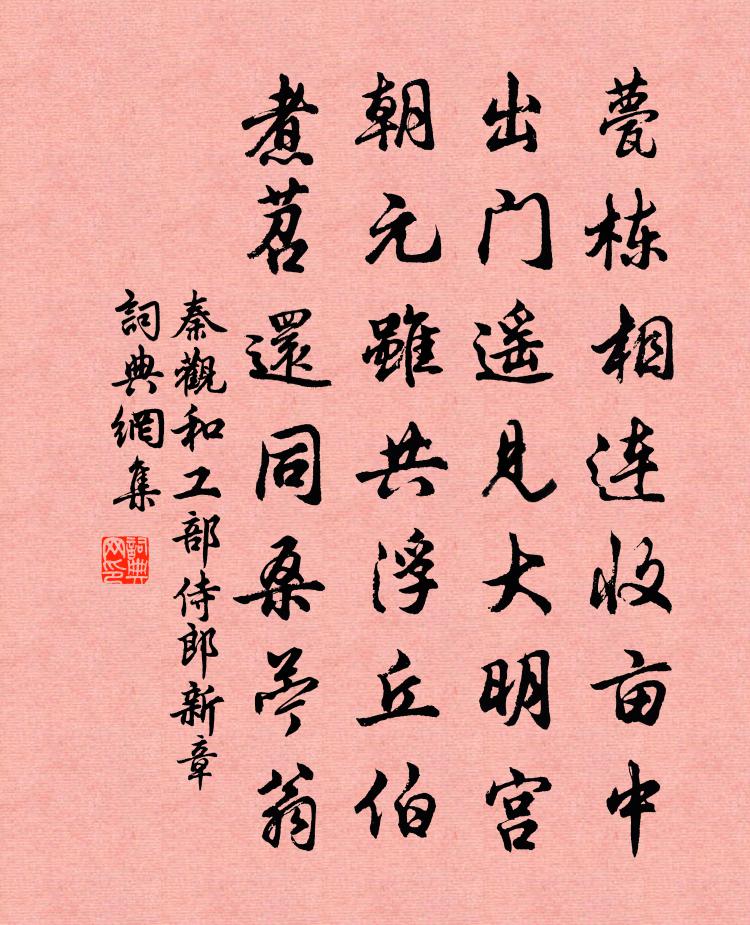 甍栋相连收亩中
出门遥见大明宫
朝元雖共浮丘伯
煮茗還同桑苎翁
秦觀和工部侍郎新章
詞典網集
詞典
网印